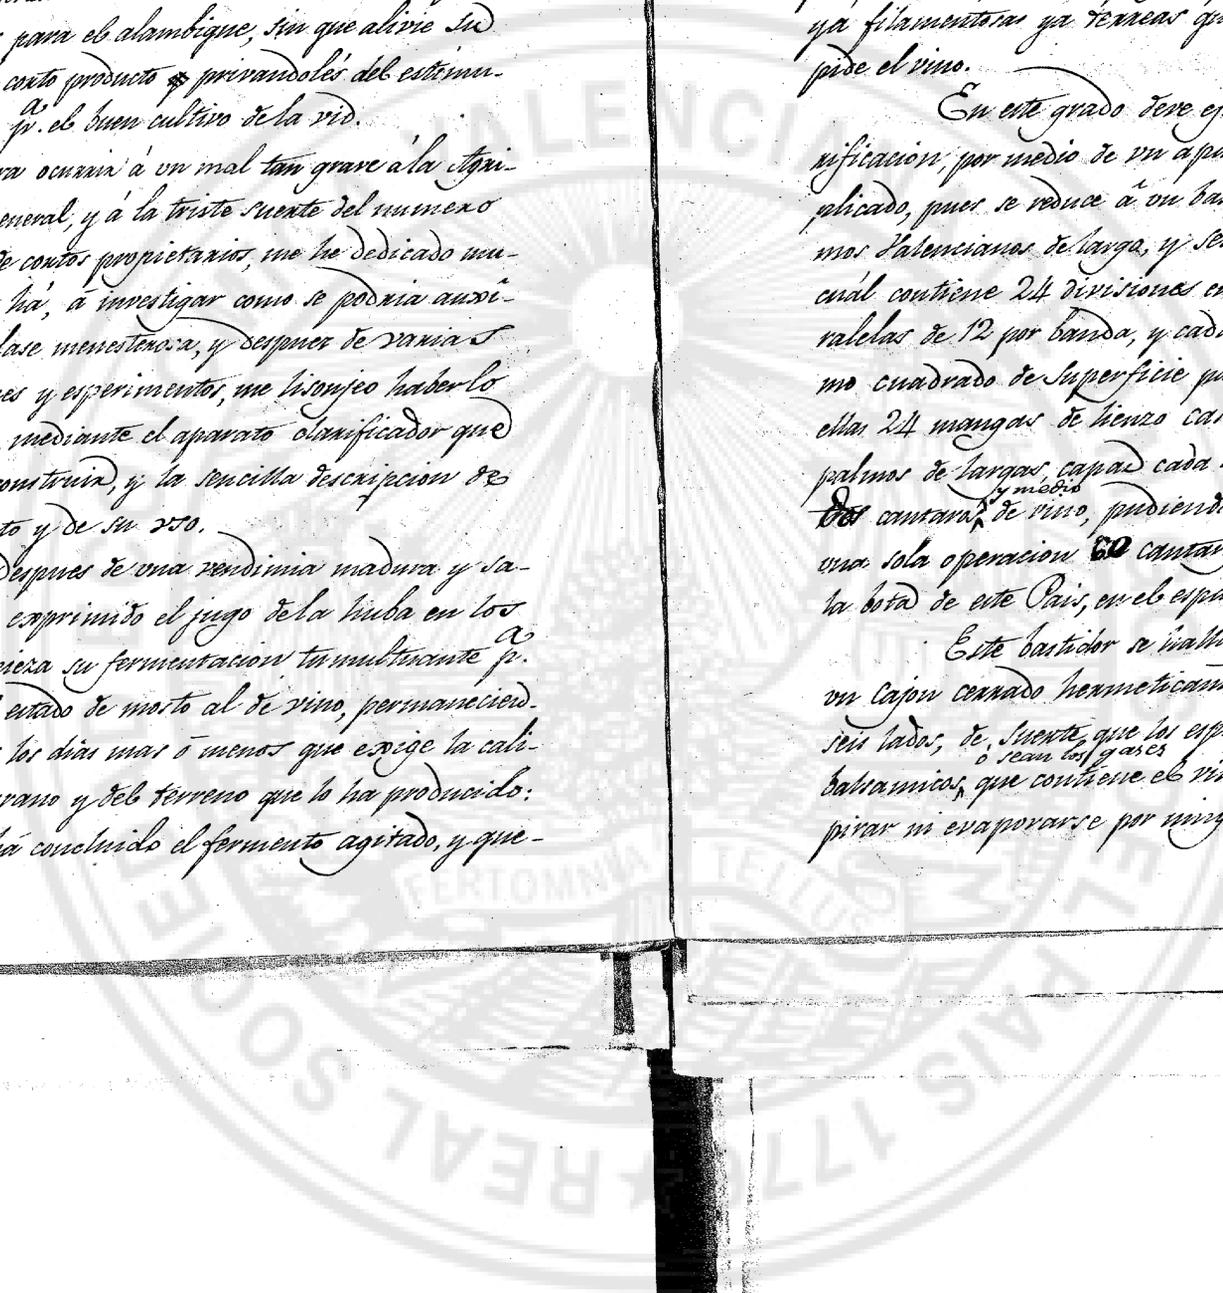 para el alambique, sin que alivie su
corto producto privandolés del estimu-
pa. el buen cultivo de la vid.
ocurrir á vn mal tan grave á la Agri-
eneral, y á la triste suerte del numero
de cortos propietarios, me he dedicado mu-
há, á investigar como se podria auxi-
lase menesterosa, y despues de varias
es y esperimentos, me lisonjeo haberlo
mediante el aparato clarificador que
onstruir, y la sencilla descripcion de
to y de su vso.
Despues de vna vendimia madura y sa-
exprimido el jugo de la huba en los
ieza su fermentacion tumultuante pa.
estado de mosto al de vino, permaneciend-
los dias mas ó menos que exige la cali-
rano y del terreno que lo ha producido:
há concluido el fermento agitado, y que-
yá filamentosas ya terreas qu
pide el vino.
En este grado deve ej
rificacion, por medio de vn apa
plicado, pues se reduce á vn bas
mos Valencianos de largo, y se
cuál contiene 24 divisiones en
ralelas de 12 por banda, y cad
mo cuadrado de superficie p
ellas 24 mangas de lienzo
palmos de largas, capaz cada
y medio
dos cantaros de vino, pudiend
vna sola operacion 60 cantar
la bota de este Pais, en el
Este bastidor se halla
vn Cajon cerrado hermeticam
seis lados, de suerte que los esp
ó sean los gases
balsamicos, que contiene el vi
pirar ni evaporarse por ning
VALENCIA
REAL SOCIEDAD
PAIS 1776